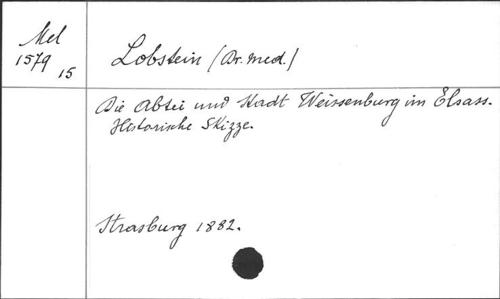 Mel
1579
15
Lobstein (Dr. med.)
Die Abtei und Stadt Weissenburg im Elsass.
Historische Skizze.
Strasburg 1882.